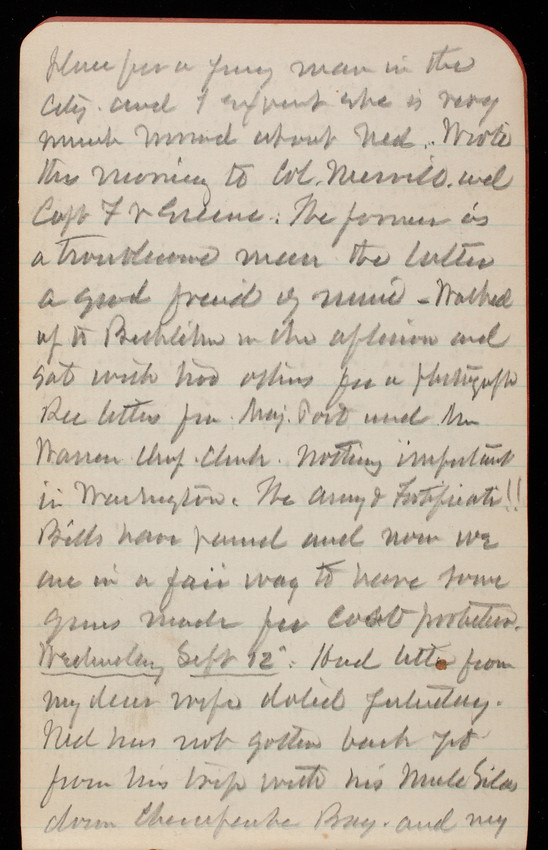 place for a young man in the
city. and I expect she is very
much worried about Ned. Wrote
this morning to Col. Merrill. and
Capt F V Greene. The former is
a troublesome man the latter
a good friend of mine - Walked
up to Bethlehem in the afternoon and
Sat with two others for a photograph
Rec letters from Maj. Post and Mr
Warren Chf. Clerk. Nothing important
in Washington. The Army & Fortificats!!
Bills have passed and now we
are in a fair way to have some
guns made for coast protection.
Wednesday Sept 12". Had letter from
my dear wife dated Saturday.
Ned has not gotten back yet
from his trip with his Uncle Silas
down Chesapeake Bay. and my